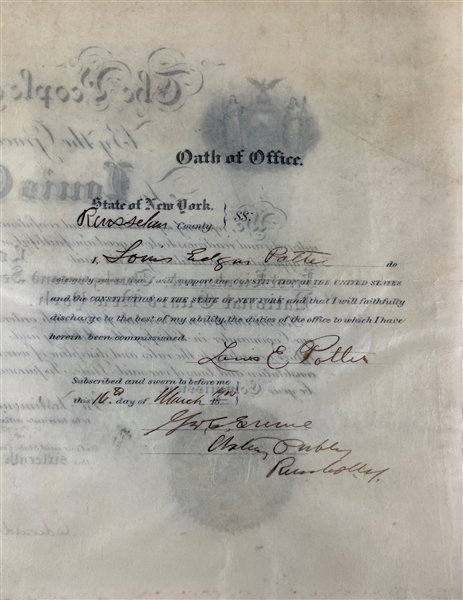 Oath of Office.
State of New York,
Rensselaer County. } SS:
I, Louis Edgar Potter do
solemnly swear that I will support the CONSTITUTION OF THE UNITED STATES
and the CONSTITUTION OF THE STATE OF NEW YORK and that I will faithfully
discharge to the best of my ability, the duties of the office to which I have
herein been commissioned.
Louis E. Potter
Subscribed and sworn to before me
this 16 day of March
Notary Public
The People
By the Grace
Louis